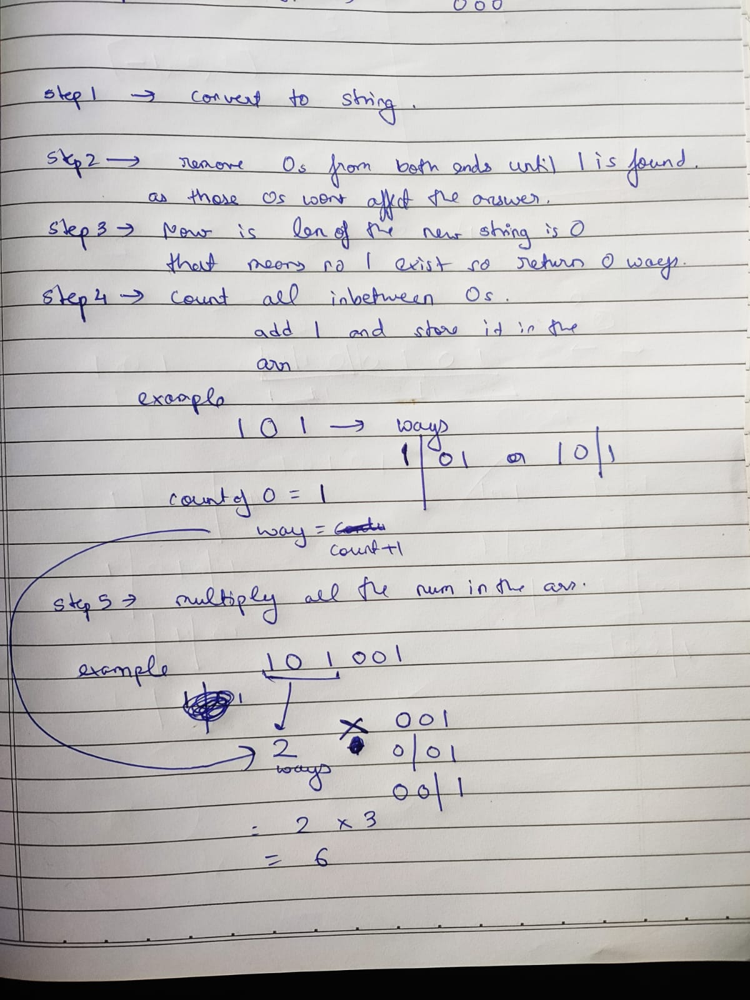 000
step 1 → convert to string.
step 2 → remove 0s from both ends until 1 is found.
as those 0s wont affect the answer.
step 3 → Now is len of the new string is 0
that means no 1 exist so return 0 ways.
step 4 → count all inbetween 0s.
add 1 and store it in the
arr
example
1 0 1 → ways
1|01 or 10|1
count of 0 = 1
way =
count+1
step 5 → multiply all the num in the arr.
example 1 0 1 0 0 1
2 ways × 001
0|01
00|1
= 2 × 3
= 6